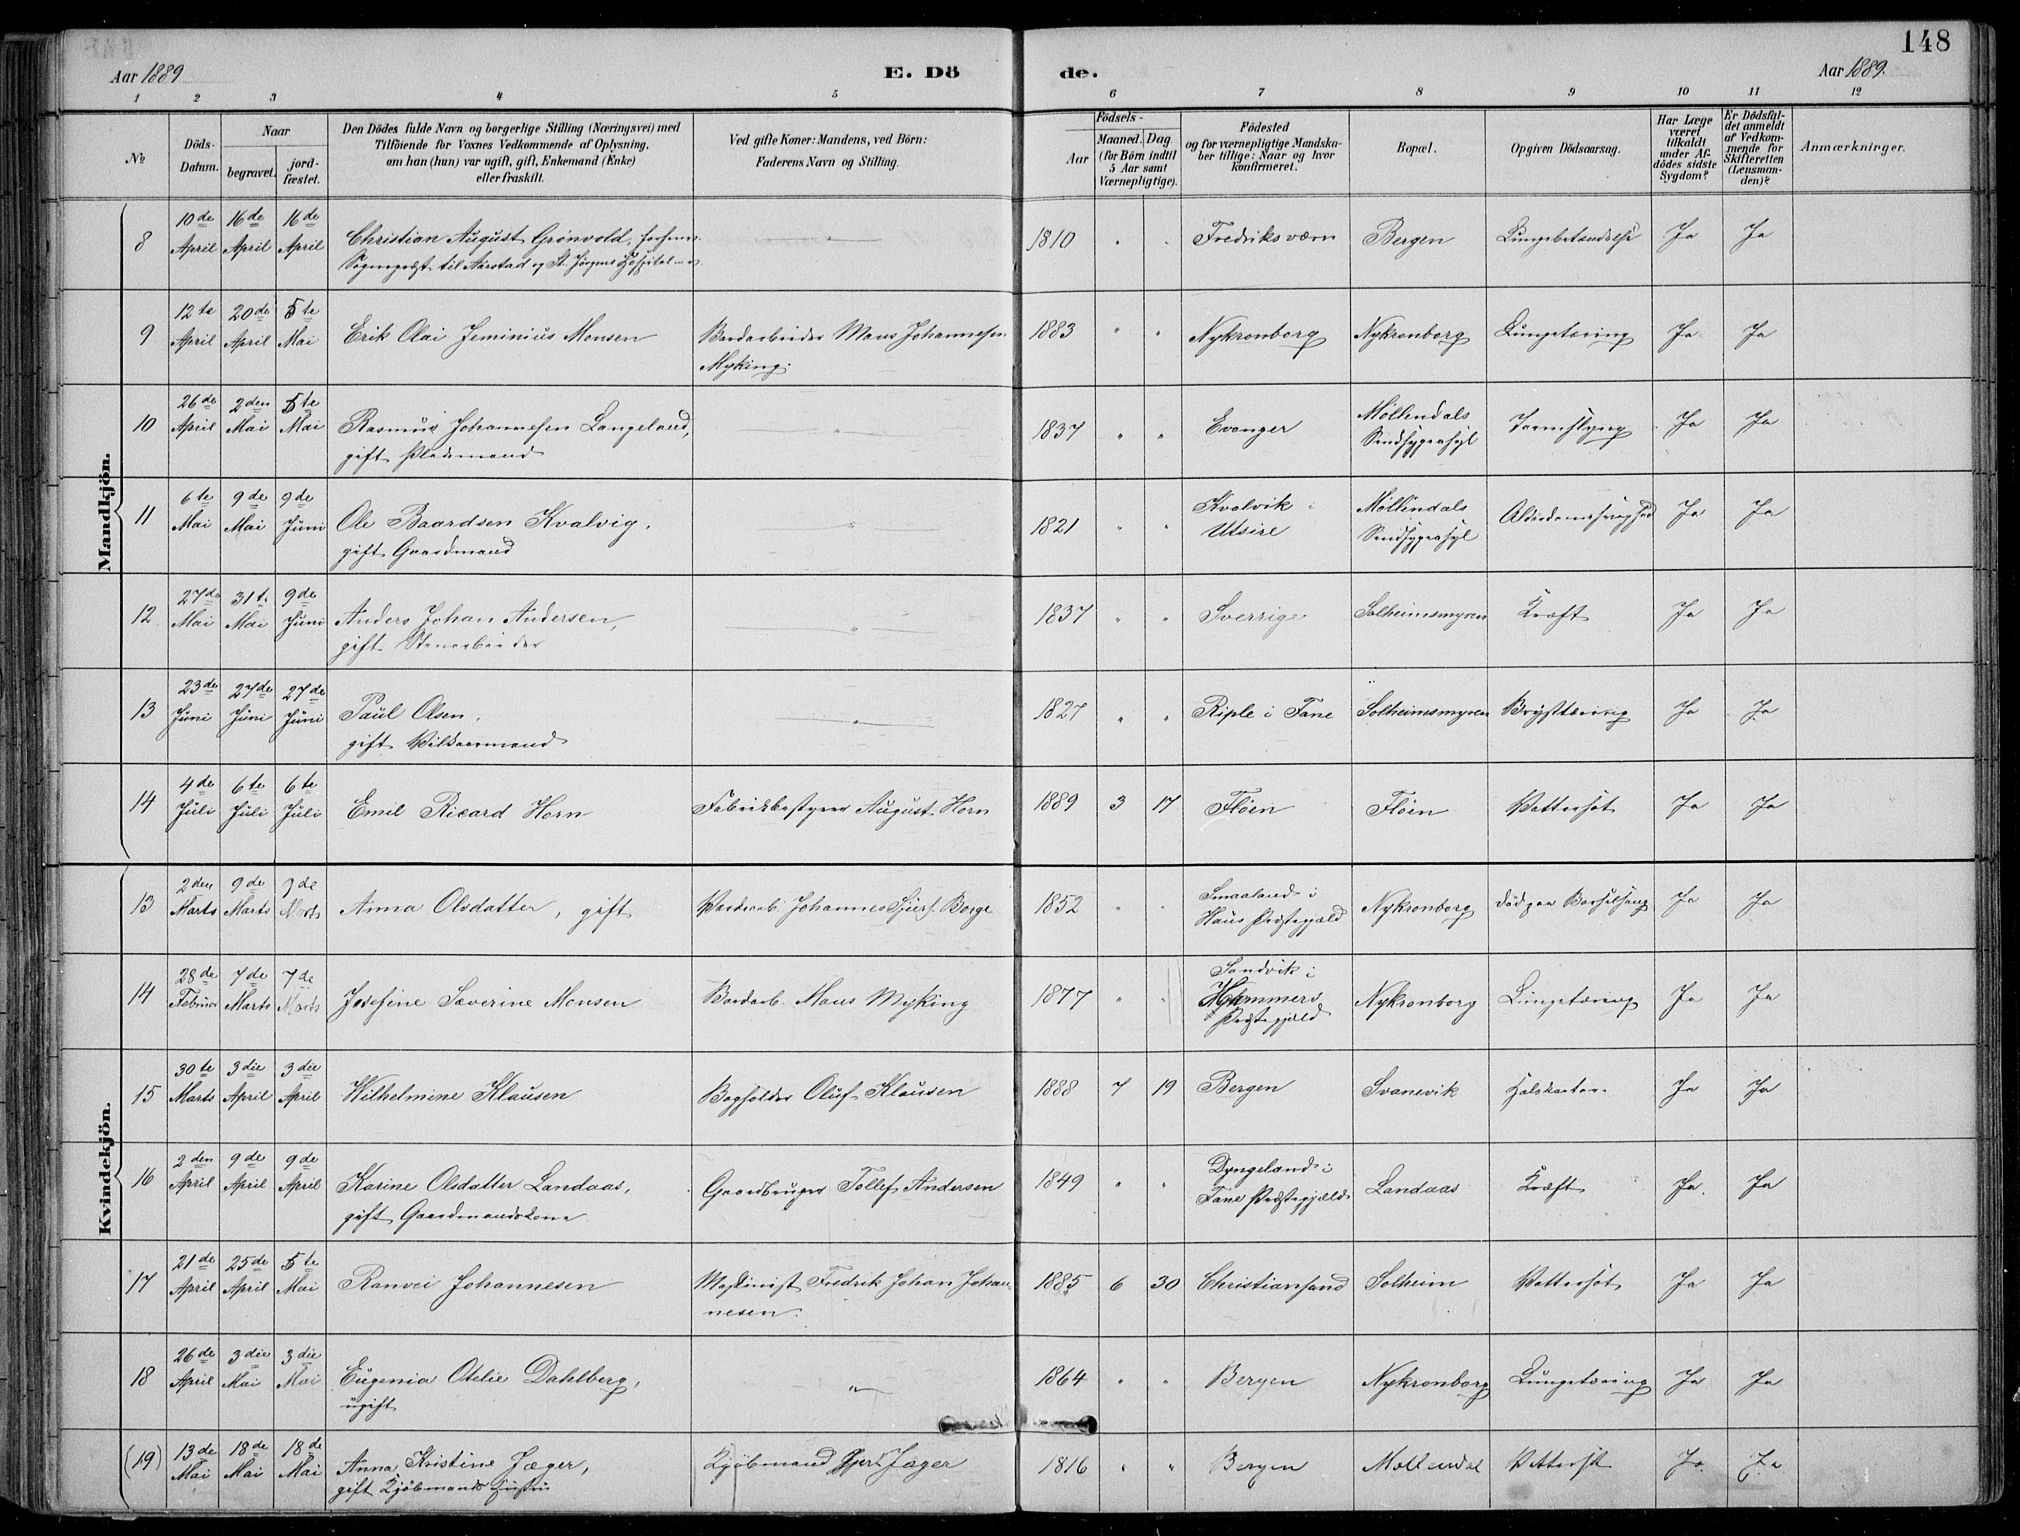 148
Aar 1889
E. Dö
de.
Aar 1889.
1 2 3 4 5 6 7 8 9 10 11 12
№
Döds-
Datum.
Naar
begravet.
jord-
fæstet.
Den Dödes fulde Navn og borgerlige Stilling (Næringsvei) med
Tilföiende for Voxnes Vedkommende af Oplysning,
om han (hun) var ugift, gift, Enkemand (Enke)
eller fraskilt.
Ved gifte Koner: Mandens, ved Börn:
Faderens Navn og Stilling.
Födsels-
Aar
Maaned. Dag
(for Börn indtil
5 Aar samt
Værnepligtige).
Födested
og for værnepligtige Mandska-
ber tillige: Naar og hvor
konfirmeret.
Bopæl.
Opgiven Dödsaarsag.
Har Læge
været
tilkaldt
under Af-
dödes sidste
Sygdom?
Er Dödsfal-
det anmeldt
af Vedkom-
mende for
Skifteretten
(Lensman-
den)?
Anmærkninger.
Mandkjön.
8 10de April 16de April 16de April Christian August Grønvold, forhenv. 1810 " " Fredriksværn Bergen Lungebetændelse Ja Ja
Sogneprest til Aarstad og St. Jørgens Hospital
9 12te April 20de April 5te Mai Erik Olai Jeminius Monsen Bordarbeider Mons Johannesen 1883 " " Nykronborg Nykronborg Lungetæring Ja Ja
Myking.
10 26de April 2den Mai 5te Mai Rasmus Johannesen Langeland, " 1837 " " Evanger Möllendals Tarmslyng Ja Ja
gift Pladsmand Sindsygeasyl
11 6te Mai 9de Mai 9de Juni Ole Baardsen Kvalvig, " 1821 " " Kvalvik i Möllendals Alderdomssvaghed Ja Ja
gift Gaardmand Utsire Sindsygeasyl
12 27de Mai 31te Mai 9de Juni Anders Johan Andersen, " 1837 " " Sverrige Solheimsmyren Kræft Ja Ja
gift Stenarbeider
13 23de Juni 27de Juni 27de Juni Paul Olsen, " 1827 " " Riple i Fane Solheimsmyren Brysttæring Ja Ja
gift Vilkaarmand
14 4de Juli 6te Juli 6te Juli Emil Ricard Horn Fabrikbestyrer August Horn 1889 3 17 Flöen Flöen Vattersot Ja Ja
Kvindekjön.
13 2den Marts 9de Marts 9de Marts Anna Olsdatter, gift Johannes Sjurs. Borge 1852 " " Smaaland i Nykronborg död paa Barselseng Ja Ja
Haus Præstegjæld
14 28de Februar 7de Marts 7de Marts Josefine Severine Monsen Bordarb. Mons Myking 1877 " " Sandvik i Nykronborg Lungetæring Ja Ja
Hammers
Præstegjæld
15 30te Marts 3die April 3die April Wilhelmine Klausen Bogholder Oluf Klausen 1888 7 19 Bergen Svanevik Halskatar. Ja Ja
16 2den April 9de April 9de April Karine Olsdatter Landaas, Gaardbruger Tollef Andersen 1849 " " Dyngeland i Landaas Kræft Ja Ja
gift Gaardmandskone Fane Præstegjæld
17 21de April 25de April 5te Mai Ranvei Johannesen Maskinist Fredrik Johan Johan- 1885 6 30 Christiansand Solheim Vattersot Ja Ja
nesen.
18 26de April 3die Mai 3die Mai Eugenia Otelie Dahlberg, " 1864 " " Bergen Nykronborg Lungetæring Ja Ja
ugift
(19) 13de Mai 18de Mai 18de Mai Anna Kristine Jæger, Kjöbmand Gert Jæger 1816 " " Bergen Möllendal Vattersot Ja Ja
gift Kjöbmands